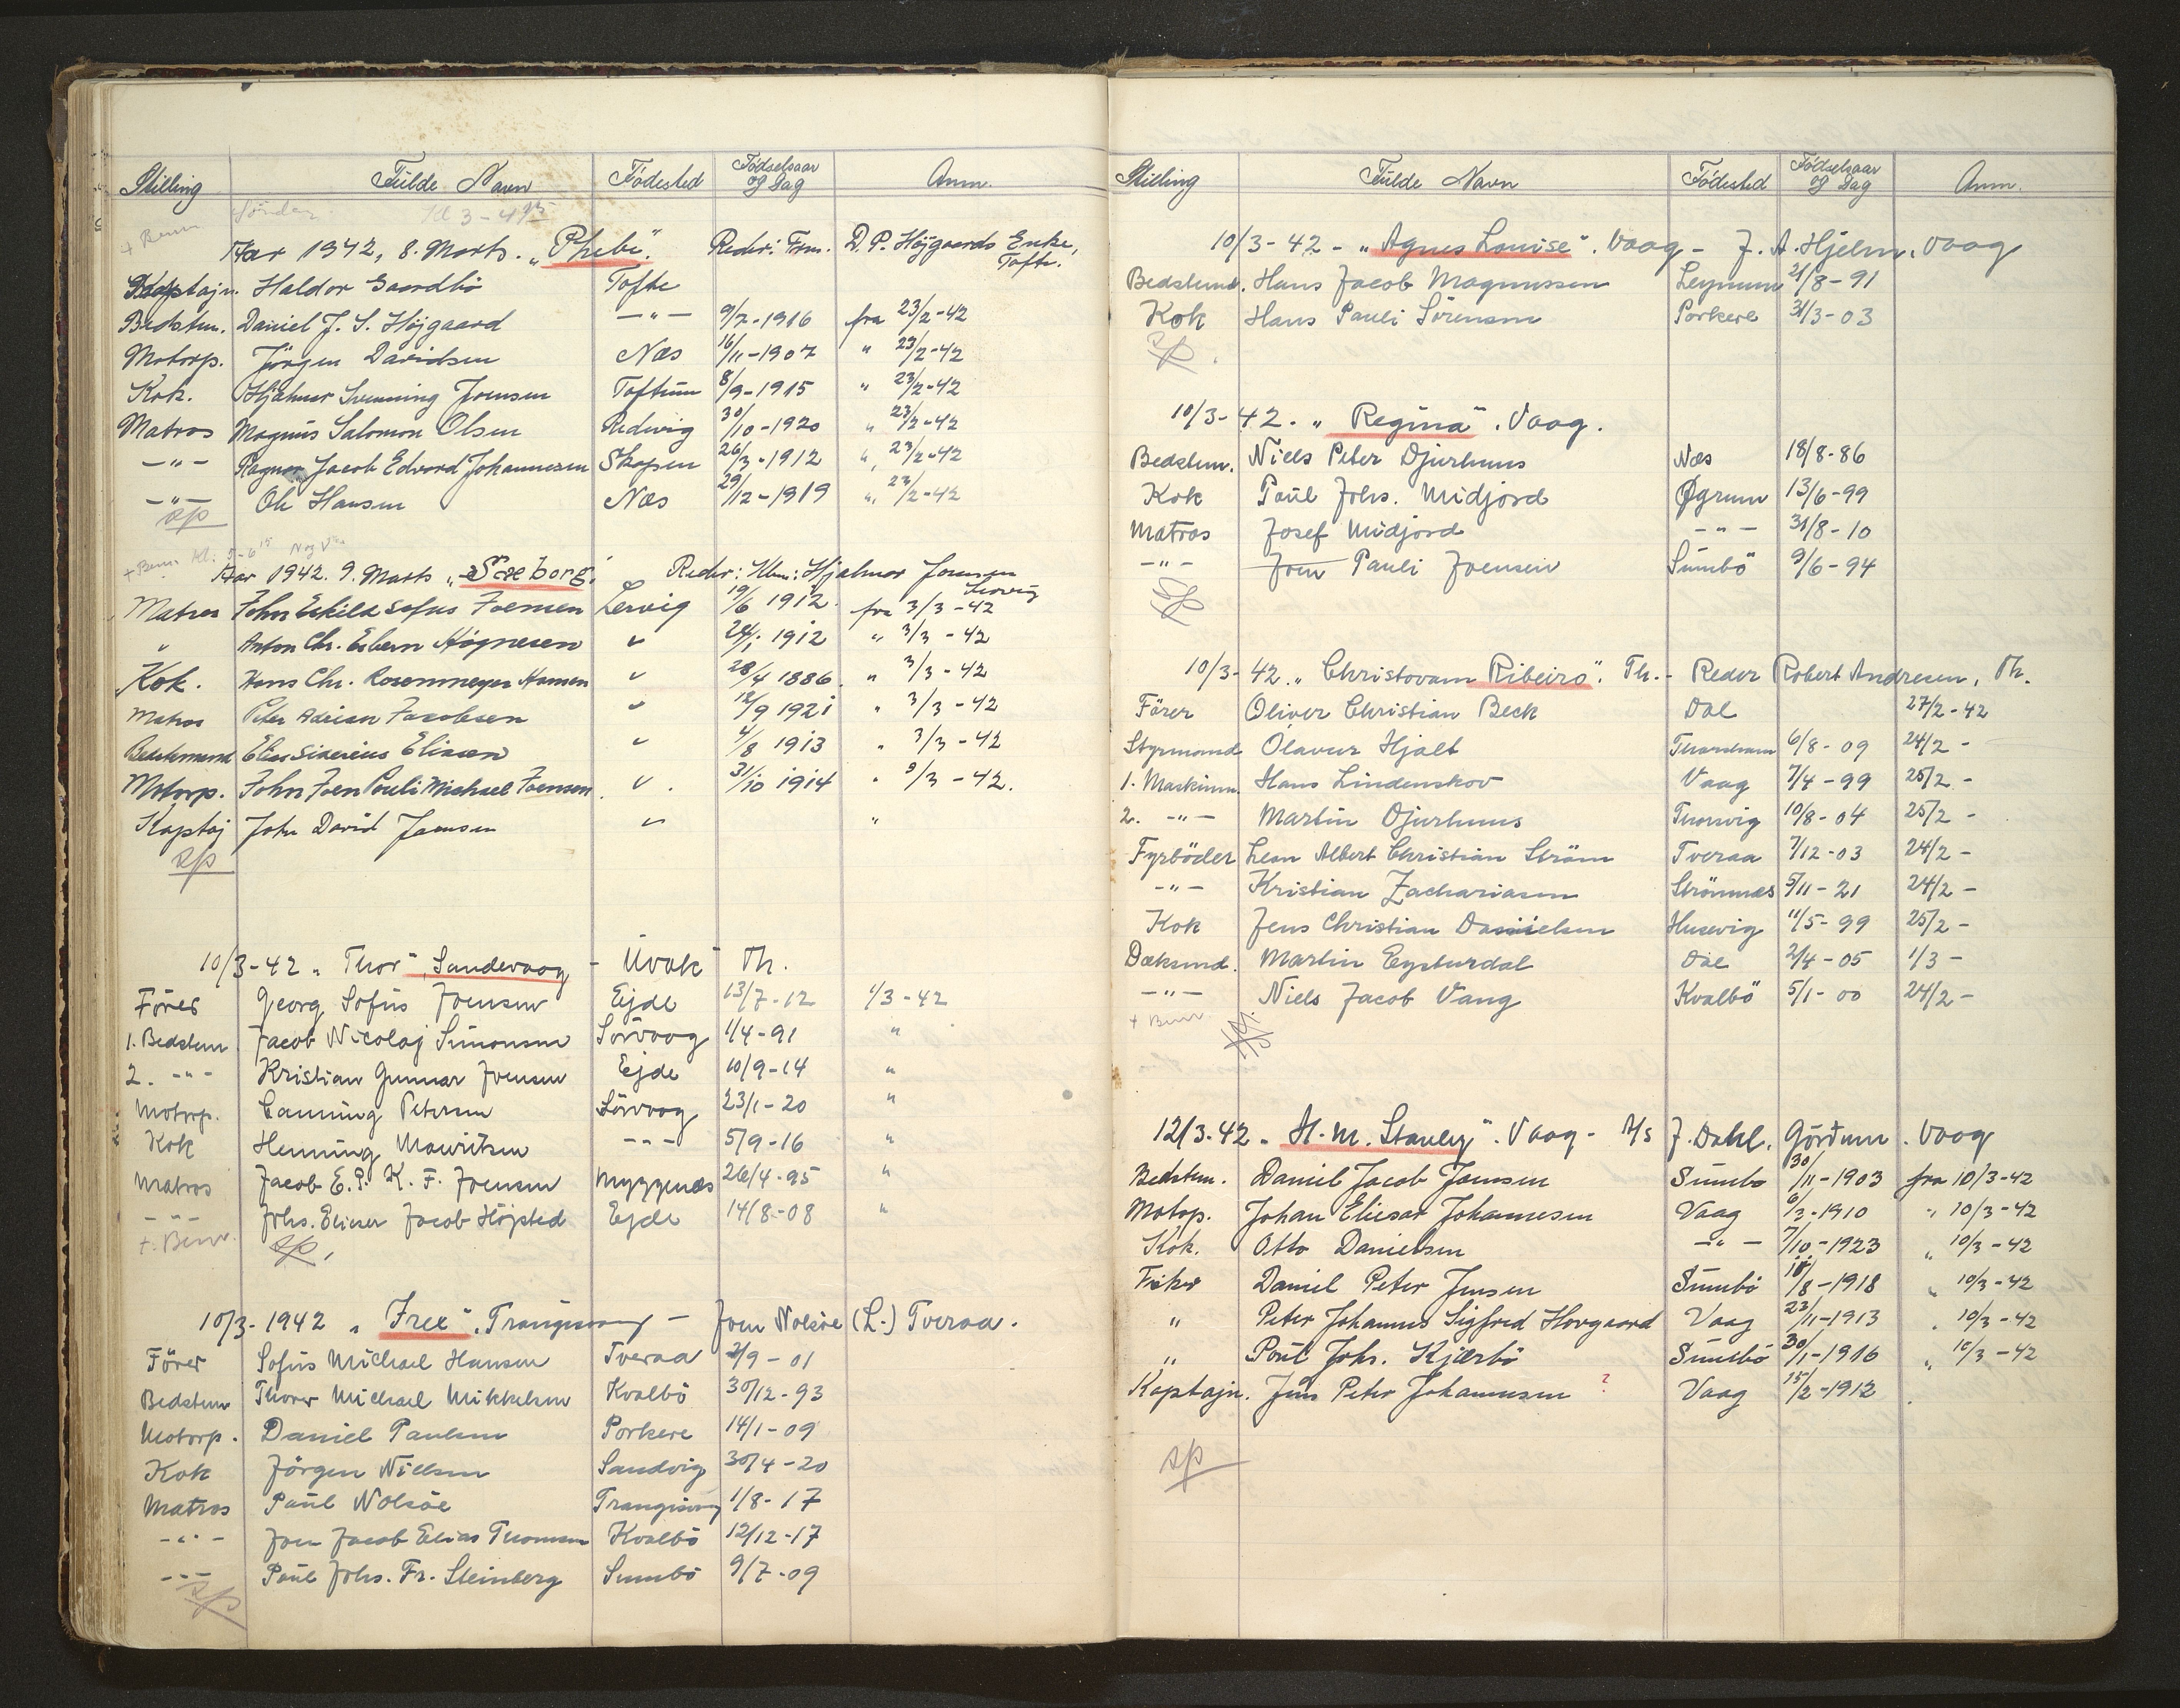 Stilling Fulde Navn Födested Födselsaar og Dag Anm.
Sönder. Kl 3-4
+ Bem
Aar 1942, 8. Marts. „Phebe“. Rederi: Frm. D. P. Höjgaards Enke, Tofte.
Kaptajn. Haldor Gaardbö Tofte
Bedstem. Daniel J. S. Höjgaard —"— 9/7-1916 fra 23/2-42
Motorp. Jörgen Davidsen Næs 16/11-1907 " 23/2-42
Kok. Hjalmar Henning Joensen Toftum 8/9-1915 " 23/2-42
Matros Magnus Salomon Olsen Redevig 30/10-1920 " 23/2-42
—"— Ragnar Jacob Edvard Johannesen Skopen 26/3-1912 " 23/2-42
—"— Ole Hansen Næs 29/12-1919 " 23/2-42
sp
+ Bem. Kl: 5-6 15
Aar 1942. 9. Marts „Sæborg“ Reder: Kbm: Hjalmar Joensen Lervig
Matros John Eskild Sofus Joensen Lervig 19/6 1912. fra 3/3-42
" Anton Chr. Esbern Högnesen " 24/1 1912 " 3/3-42
Kok. Hans Chr. Rosenmeyer Hansen " 28/4 1886. " 3/3-42
Matros Peter Adrian Jacobsen " 12/9 1921 " 3/3-42
Bedstemand Elias Siverius Eliasen " 4/8 1913 " 3/3-42
Motorp. John Joen Pouli Michael Joensen " 31/10 1914 " 3/3-42.
Kaptaj John David Joensen " "
sp
10/3-42 „Thor“, Sandevaag - Uvak Th.
Förer Georg Sofus Joensen Ejde 13/7-12 1/3-42
1. Bedstem Jacob Nicolaj Simonsen Sörvaag 1/4-91 "
2. -"- Kristian Gunnar Joensen Ejde 10/9-14 "
Motorp. Canning Petersen Sörvaag 23/1-20 "
Kok Henning Mouritsen -"- 5/9-16 "
Matros Jacob E. P. K. F. Joensen Myggenæs 26/4-95 "
-"- Johs. Elieser Jacob Höjsted Ejde 14/8-08 "
+. Bem. sp.
10/3-1942 „Frex“, Trangisvaag - Joen Nolsöe (L-) Tveraa.
Förer Sofus Michael Hansen Tveraa 2/9-01
Bedstem Thorer Michael Mikkelsen Kvalbö 30/12-93
Motorp. Daniel Poulsen Porkere 14/1-09
Kok Jörgen Nielsen Sandvig 30/4-20
Matros Paul Nolsöe Trangisvaag 1/8-17
-"- Joen Jacob Elias Thomsen Kvalbö 12/12-17
-"- Poul Johs. Fr. Steinberg Sumbö 9/7-09
sp
Stilling Fulde Navn Födested Födselsaar og Dag Anm.
10/3-42 - „Agnes Louise“. Vaag - J. A. Hjelm, Vaag
Bedstemd. Hans Jacob Magnussen Leynum 21/8-91
Kok Hans Pauli Sörensen Porkere 31/3-03
sp.
10/3-42. „Regina“. Vaag.
Bedstem. Niels Peter Djurhuus Næs 18/8-86
Kok Paul Johs. Midjord Øgrum 13/6-99
Matros Josef Midjord -"- 31/8-10
-"- Joen Pauli Joensen Sumbö 9/6-94
sp
10/3-42. „Christovam Ribeiro“. Th. - Reder Robert Andresen, Th.
Förer Oliver Christian Beck Dal 27/2-42
Styrmand Olavur Hjalt Thorshavn 6/8-09 24/2-
1. Maskinm. Hans Lindenskov Vaag 7/4-99 25/2-
2. -"- Martin Djurhuus Thorsvig 10/8-04 25/2-
Fyrböder Leon Albert Christian Ström Tveraa 7/12-03 24/2-
-"- Kristian Zachariasen Strömnæs 5/11-21 24/2-
Kok Jens Christian Danielsen Husevig 11/5-99 25/2-
Dæksmd. Martin Eysturdal Dal 2/4-05 1/3-
-"- Niels Jacob Vang Kvalbö 5/1-00 24/2-
+ Bem.
12/3-42 „H. M. Stanley“. Vaag - A/S J. Dahl, Gördum. Vaag
Bedstem. Daniel Jacob Joensen Sumbö 30/11-1903 fra 10/3-42
Motop. Johan Eliesar Johannesen Vaag 6/3-1910 " 10/3-42
Kok. Otto Danielsen —"— 7/10-1923 " 10/3-42
Fisker Daniel Peter Jensen Sumbö 18/8-1918 " 10/3-42
" Peter Johannes Sigfred Hovgaard Vaag 23/11-1913 " 10/3-42
" Poul Johs. Kjærbö Sumbö 30/1-1916 " 10/3-42
Kaptajn. Jens Peter Johannesen ? Vaag 15/2-1912
sp